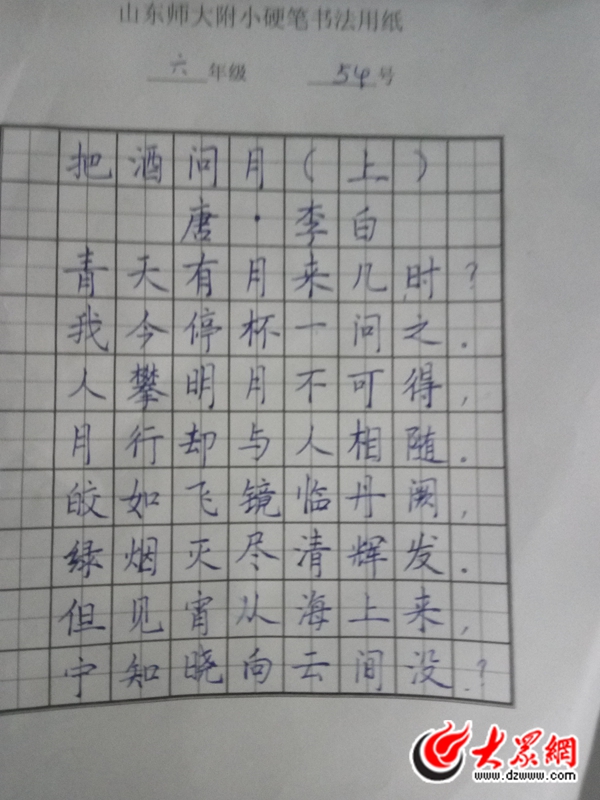 山东师大附小硬笔书法用纸
六年级 54号
把酒问月(上)
唐·李白
青天有月来几时?
我今停杯一问之.
人攀明月不可得,
月行却与人相随.
皎如飞镜临丹阙,
绿烟灭尽清辉发.
但见宵从海上来,
宁知晓向云间没?
大众網
www.dzwww.com